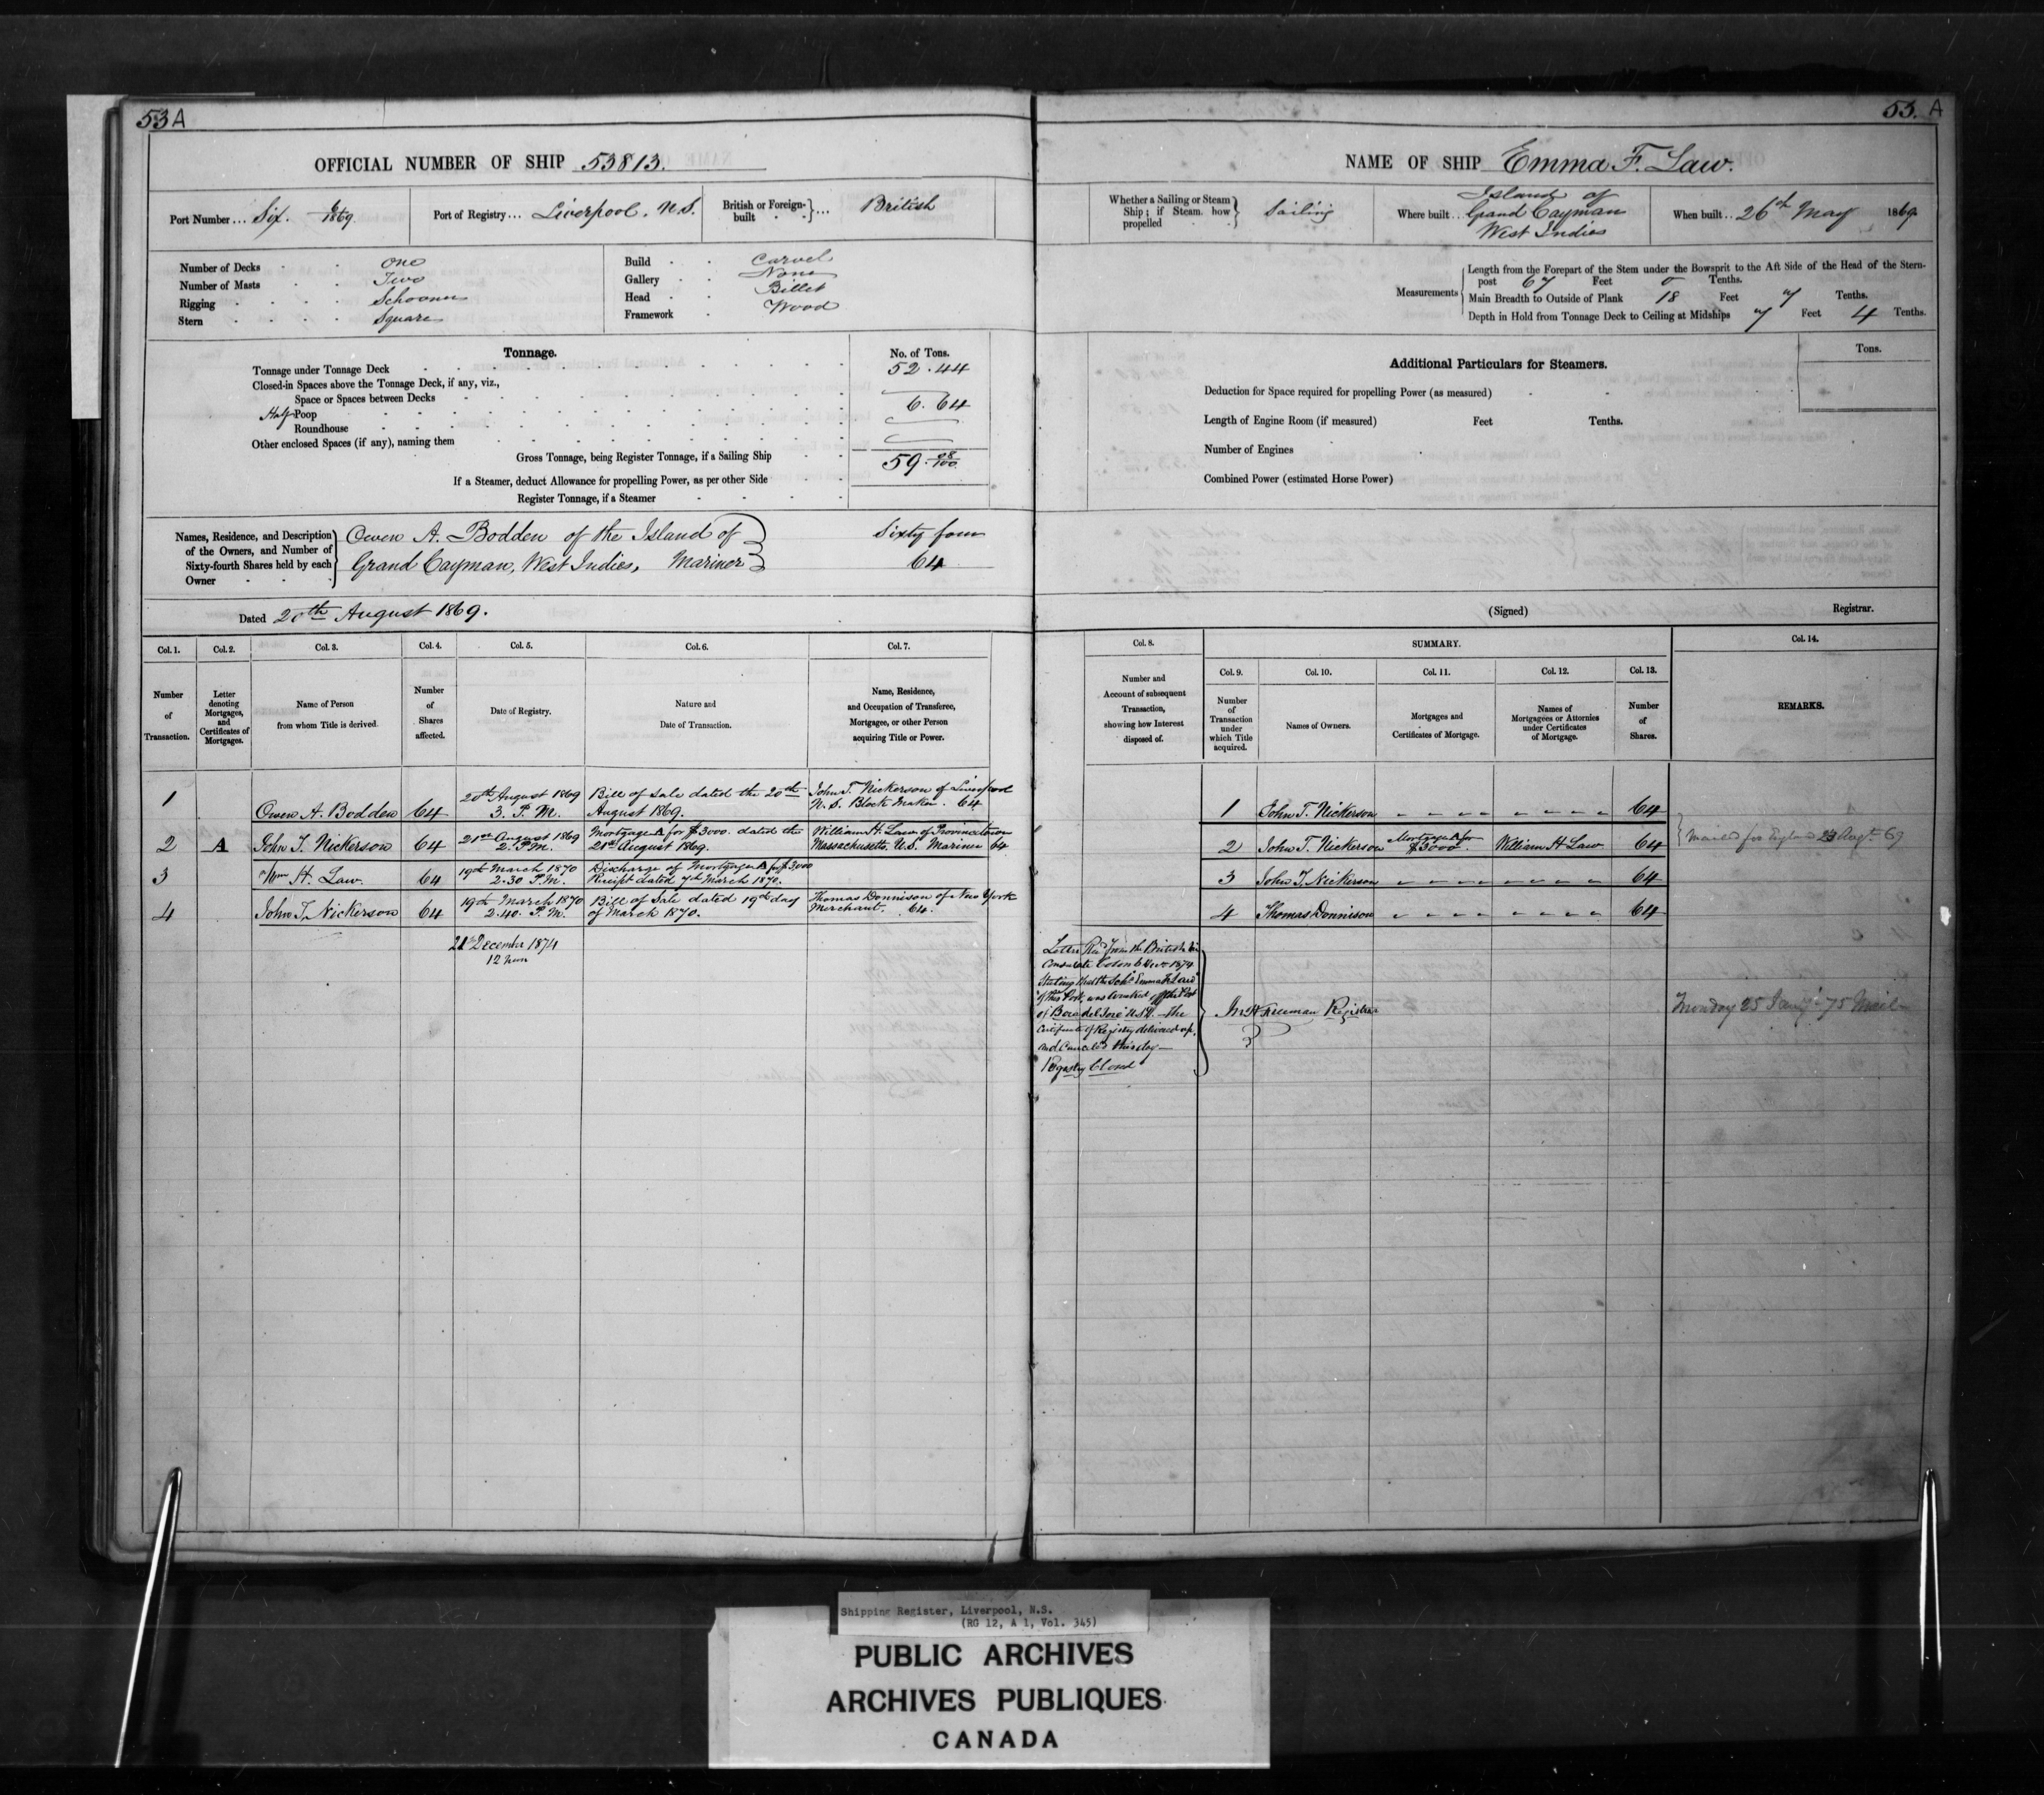 53A
OFFICIAL NUMBER OF SHIP 53813.
Port Number... Six. 6/1869
Port of Registry... Liverpool, N.S.
British or Foreign-built ... British
Number of Decks One
Number of Masts Two
Rigging Schooner
Stern Square
Build Carvel
Gallery None
Head Billet
Framework Wood
Tonnage.
No. of Tons.
Tonnage under Tonnage Deck 52.44
Closed-in Spaces above the Tonnage Deck, if any, viz.,
Space or Spaces between Decks
Half Poop 6.64
Roundhouse
Other enclosed Spaces (if any), naming them
Gross Tonnage, being Register Tonnage, if a Sailing Ship 59.08/100
If a Steamer, deduct Allowance for propelling Power, as per other Side
Register Tonnage, if a Steamer
Names, Residence, and Description
of the Owners, and Number of
Sixty-fourth Shares held by each
Owner
Owen A. Bodden of the Island of
Grand Cayman, West Indies, Mariner
Sixty four
64
Dated 20th August 1869.
Col. 1. Col. 2. Col. 3. Col. 4. Col. 5. Col. 6. Col. 7.
Number of Transaction.
Letter denoting Mortgages, and Certificates of Mortgages.
Name of Person from whom Title is derived.
Number of Shares affected.
Date of Registry.
Nature and Date of Transaction.
Name, Residence, and Occupation of Transferee, Mortgagee, or other Person acquiring Title or Power.
1 Owen A. Bodden 64 20th August 1869 3. P.M. Bill of Sale dated the 20th August 1869. John T. Nickerson of Liverpool N.S. Block Maker. 64
2 A John T. Nickerson 64 21st August 1869 2. P.M. Mortgage A for $3000. dated the 21st August 1869. William H. Law of Provincetown Massachusetts U.S. Mariner 64
3 Wm H. Law. 64 19th March 1870 2.30 P.M. Discharge of Mortgage A for $3000 Receipt dated 7th March 1870.
4 John T. Nickerson 64 19th March 1870 2.40. P.M. Bill of Sale dated 19th day of March 1870. Thomas Donnison of New York Merchant. 64.
21st December 1874
12 noon
53. A
NAME OF SHIP Emma F. Law.
Whether a Sailing or Steam Ship; if Steam, how propelled Sailing
Where built.. Island of Grand Cayman West Indies
When built.. 26th May 1869
Measurements
Length from the Forepart of the Stem under the Bowsprit to the Aft Side of the Head of the Stern-
post 67 Feet 0 Tenths.
Main Breadth to Outside of Plank 18 Feet 7 Tenths.
Depth in Hold from Tonnage Deck to Ceiling at Midships 7 Feet 4 Tenths.
Additional Particulars for Steamers.
Tons.
Deduction for Space required for propelling Power (as measured)
Length of Engine Room (if measured) Feet Tenths.
Number of Engines
Combined Power (estimated Horse Power)
(Signed) Registrar.
Col. 8. SUMMARY. Col. 14.
Col. 9. Col. 10. Col. 11. Col. 12. Col. 13.
Number and Account of subsequent Transaction, showing how Interest disposed of.
Number of Transaction under which Title acquired.
Names of Owners.
Mortgages and Certificates of Mortgage.
Names of Mortgagees or Attornies under Certificates of Mortgage.
Number of Shares.
REMARKS.
1 John T. Nickerson 64
2 John T. Nickerson Mortgage A for $3000. William H Law 64
mailed for England 23 Augt 69
3 John T. Nickerson 64
4 Thomas Donnison 64
Letter Recd from the British
Consulate Colon Nov 1874
Stating that the Schr Emma F Law
of this Port, was wrecked off the Port
of Boca del Toro U.S.C. the
Certificate of Registry delivered up,
and Canceled
Registry Closed
Freeman Registrar
Monday 25 Jany 75 Mail
Shipping Register, Liverpool, N.S.
(RG 12, A 1, Vol. 345)
PUBLIC ARCHIVES
ARCHIVES PUBLIQUES
CANADA